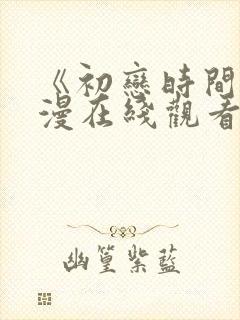 《初戀時間
漫在綫觀看
幽篁紫藍